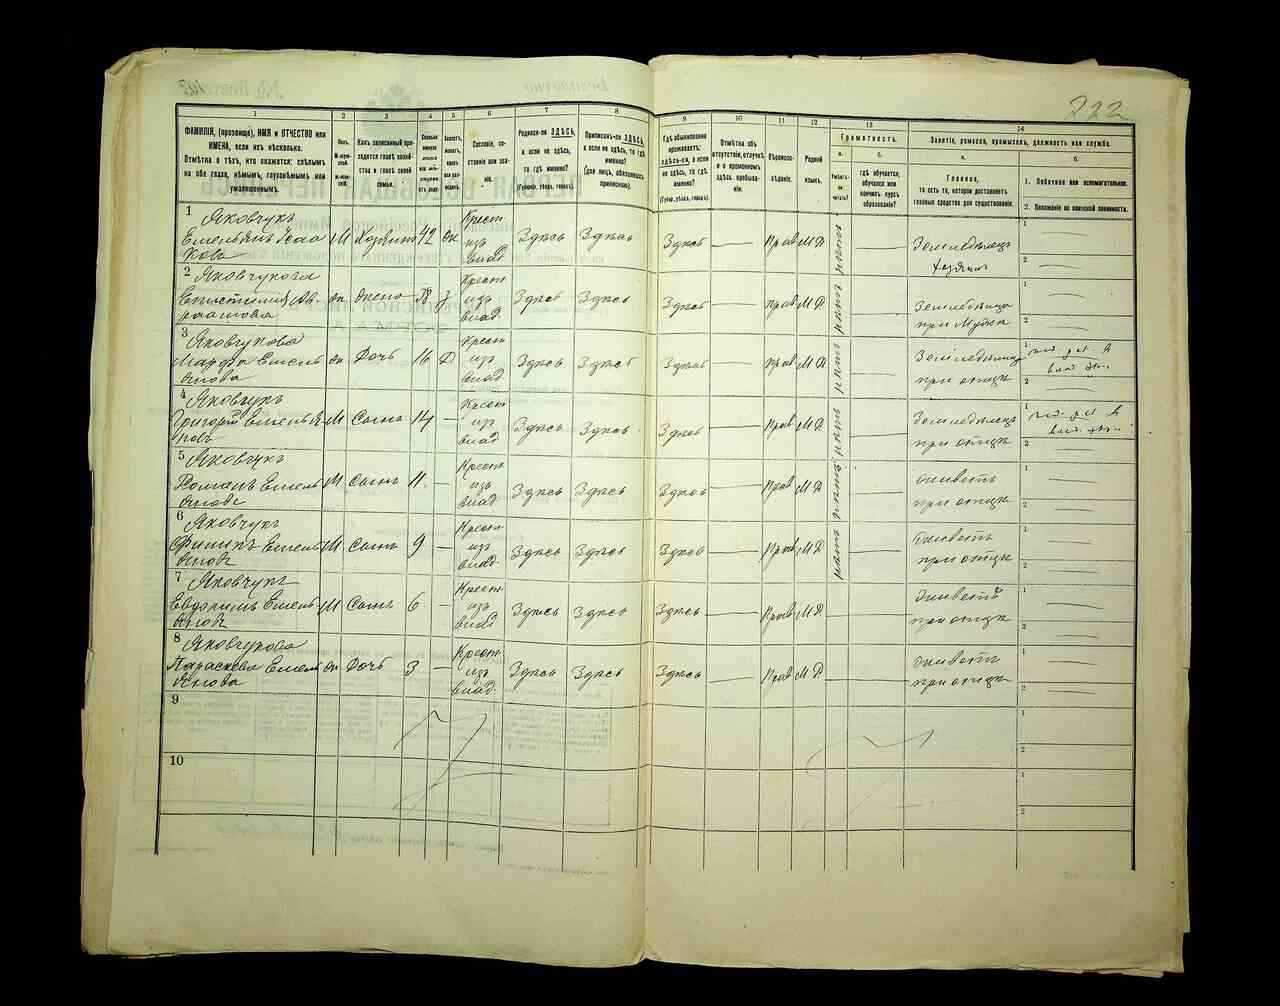 222
1 2 3 4 5 6 7 8 9 10 11 12 13 14
ФАМИЛІЯ, (прозвище), ИМЯ и ОТЧЕСТВО или
ИМЕНА, если ихъ нѣсколько.
Отмѣтка о тѣхъ, кто окажется: слѣпымъ
на оба глаза, нѣмымъ, глухонѣмымъ или
умалишеннымъ.
Полъ.
Какъ записанный при-
ходится главѣ хозяй-
ства и главѣ своей
семьи.
Сословіе, со-
стояніе или зва-
ніе.
Родился-ли ЗДѢСЬ,
а если не здѣсь,
то гдѣ именно?
(Губернія, уѣздъ, городъ).
Приписанъ-ли ЗДѢСЬ,
а если не здѣсь, то гдѣ
именно?
(для лицъ, обязанныхъ
припискою).
Гдѣ обыкновенно
проживаетъ:
здѣсь-ли, а если
не здѣсь, то гдѣ
именно?
(Губер., уѣздъ, городъ).
Отмѣтка объ
отсутствіи, отлучкѣ
и о временномъ
здѣсь пребыва-
ніи.
Вѣроиспо-
вѣданіе.
Родной
языкъ.
Грамотность.
а. б.
Умѣетъ-
ли
читать?
гдѣ обучается,
обучался или
кончилъ курсъ
образованія?
Занятіе, ремесло, промыселъ, должность или служба.
а. б.
Главное,
то есть то, которое доставляетъ
главныя средства для существованія.
1. Побочное или вспомогательное.
2. Положеніе по воинской повинности.
1 Яковчукъ
Емельянъ Исаа
ковъ М Хозяинъ 42 Крест. из влад. Здѣсь Здѣсь Здѣсь — Прав М Р нѣтъ — Земледѣлецъ
хозяинъ 1 — 2 —
2 Яковчукова
Крест из влад. Здѣсь Здѣсь Здѣсь — Прав М Р нѣтъ — Земледѣлица
при мужѣ 1 — 2 —
3 Яковчукова
Марфа Емель
янова Дочь 16 Крест из влад Здѣсь Здѣсь Здѣсь — Прав М Р нѣтъ — Земледѣлица
при отцѣ 1 2 —
4 Яковчукъ
Григорій Емелья
новъ М Сынъ 14 — Крест из влад Здѣсь Здѣсь Здѣсь — Прав М Р нѣтъ — Земледѣлецъ
при отцѣ 1 2 —
5 Яковчукъ
Романъ Емель
яновъ М Сынъ 11 — Крест из влад Здѣсь Здѣсь Здѣсь — Прав М Р нѣтъ — живетъ
при отцѣ 1 — 2 —
6 Яковчукъ
Филипъ Емель
яновъ М Сынъ 9 — Крест из влад. Здѣсь Здѣсь Здѣсь — Прав М Р нѣтъ — живетъ
при отцѣ 1 — 2 —
7 Яковчукъ
Евдокимъ Емель
яновъ М Сынъ 6 — Крест из влад Здѣсь Здѣсь Здѣсь — Прав М Р — — живетъ
при отцѣ 1 — 2 —
8 Яковчукова
Параскева Емель
янова Дочь 3 — Крест из влад. Здѣсь Здѣсь Здѣсь — Прав М Р — — живетъ
при отцѣ 1 — 2 —
9 1 2
10 1 2